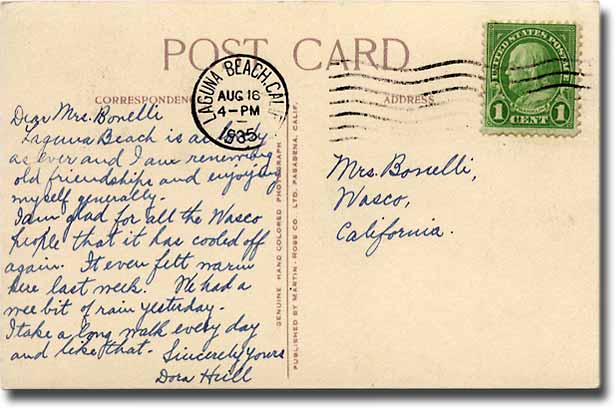 POST CARD
CORRESPONDENCE
ADDRESS
LAGUNA BEACH, CALIF.
AUG 16
4-PM
1935
UNITED STATES POSTAGE
1 CENT 1
Dear Mrs. Bonelli
Laguna Beach is as
as ever and I am renewing
old friendships and enjoying
myself generally.
I am glad for all the Wasco
people that it has cooled off
again. It even felt warm
here last week. We had a
wee bit of rain yesterday.
I take a long walk every day
and like that. Sincerely yours
Dora Hull
GENUINE HAND COLORED PHOTOGRAPH
PUBLISHED BY MARTIN-ROSS CO. LTD. PASADENA, CALIF.
Mrs. Bonelli,
Wasco,
California.